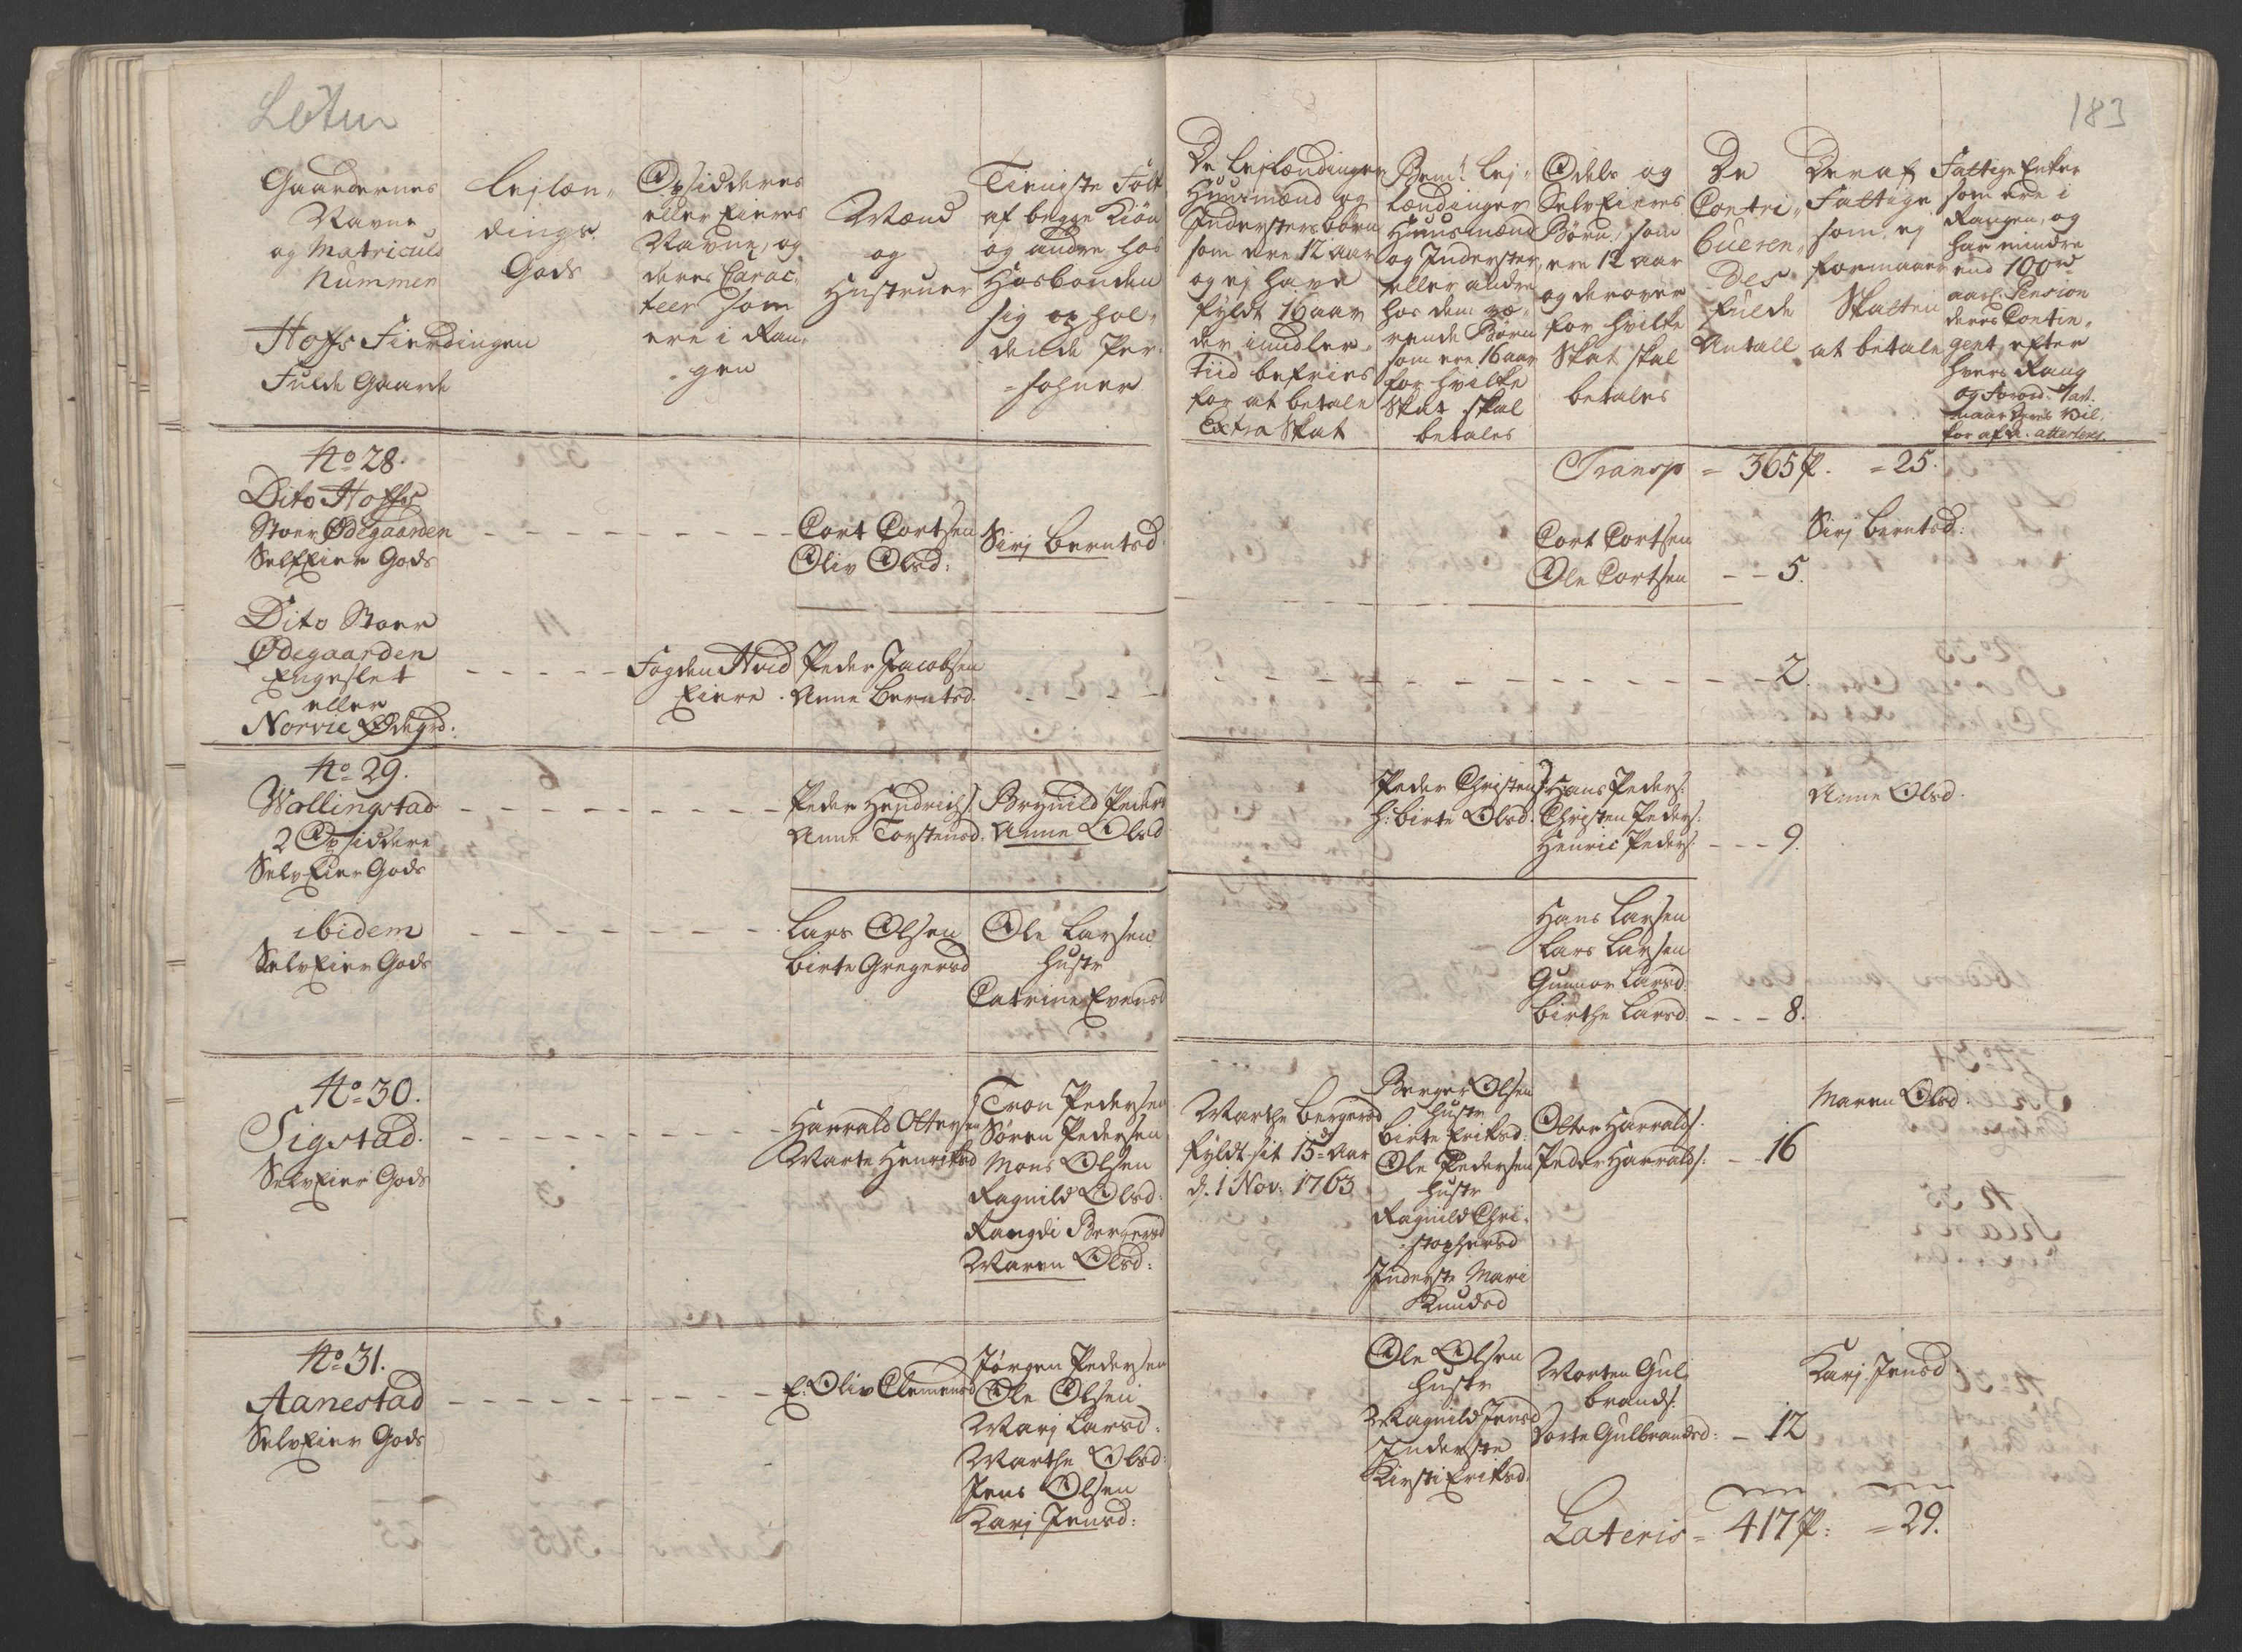 Løten
183
Gaardernes
Navne
og Matriculs
Nummer
Hoffs Fierdingen
Fulde Gaarde
Lejlæn-
dings
Gods
Opsidderes
eller Eieres
Navne, og
deres Carac-
teer som
ere i Ran-
gen
Mænd
og
Hustruer
Tieniste Folk
af begge Kiøn
og andre hos
Hosbonden
sig op hol-
dende Per-
sohner
De Lejlændinger
Huusmænd og
Inderstersbørn
som ere 12 aar
og ej have
fyldt 16 aar
der imidler-
tiid befries
for at betale
Extra Skat
Bemt. Lej-
lændinger
Huusmænd
og Inderster
eller andre
hos dem væ-
rende Børn
som ere 16 aar
for hvilke
Skat skal
betales
Odels og
SelvEieres
Børn, som
ere 12 aar
og derover
for hvilke
Skat skal
betales
De
Contri-
bueren-
des
fulde
Antall
Deraf
Fattige
som ej
formaaer
Skatten
at betale
Fattige Enker
som ere i
Rangen, og
har mindre
end 100 rd
aarl. Pension
deres Contin-
gent, efter
hvers Rang
Transp = 365 P. = 25.
No 28.
Dito Hoffs
Stoer Ødegaarden
SelfEier Gods
Cort Cortsen
Oliv Olsd:
Sirj Berntsd
Cort Cortsen
Ole Cortsen - - 5.
Sirj Berntsd:
Dito Stoer
Ødegaarden
Engeslet
eller
Norvic Ødegrd:
Fogden Hvid
Eiere.
Peder Jacobsen
Anne Berntsd.
2.
No 29.
Wollingstad
2 Opsiddere
SelvEier Gods
Peder Hendrichs:
Anne Torstensd.
Brynild Peders
Anne Olsd
Peder Christens:
H: Birte Olsd.
Hans Peders:
Christen Peders:
Henric Peders: - - - 9.
Anne Olsd.
ibidem
SelvEier Gods
Lars Olsen
Birte Gregersd
Ole Larsen
Hustr
Catrine Evensd
Hans Larsen
Lars Larsen
Gunnor Larsd:
Birthe Larsd. - - - 8.
No 30.
Sigstad.
SelvEier Gods
Harrald Oltersen
Marte Henriksd
Tron Pedersen
Søren Pedersen
Mons Olsen
Ragnild Olsd:
Rangdi Bergersd
Maren Olsd:
Marthe Bergersd
fyldt sit 15de Aar
d. 1 Nov: 1763
Berger Olsen
Hustr
Birte Eriksd:
Ole Pedersen
Hustr
Ragnild Chri-
stophersd
Inderste Mari
Knudsd
Olter Harralds:
Peder Harralds: - 16
Maren Olsd.
No 31.
Aanestad
SelvEier Gods
E. Oliv Clemensd
Jørgen Pedersen
Ole Olsen
Marj Larsd:
Marthe Olsd:
Jens Olsen
Karj Jensd:
Ole Olsen
Hustr
Magnild Jensd
Inderste
Kirsti Eriksd.
Morten Gul-
brands:
Dorte Gulbrandsd: - 12
Karj Jensd
Lateris = 417 P: = 29.